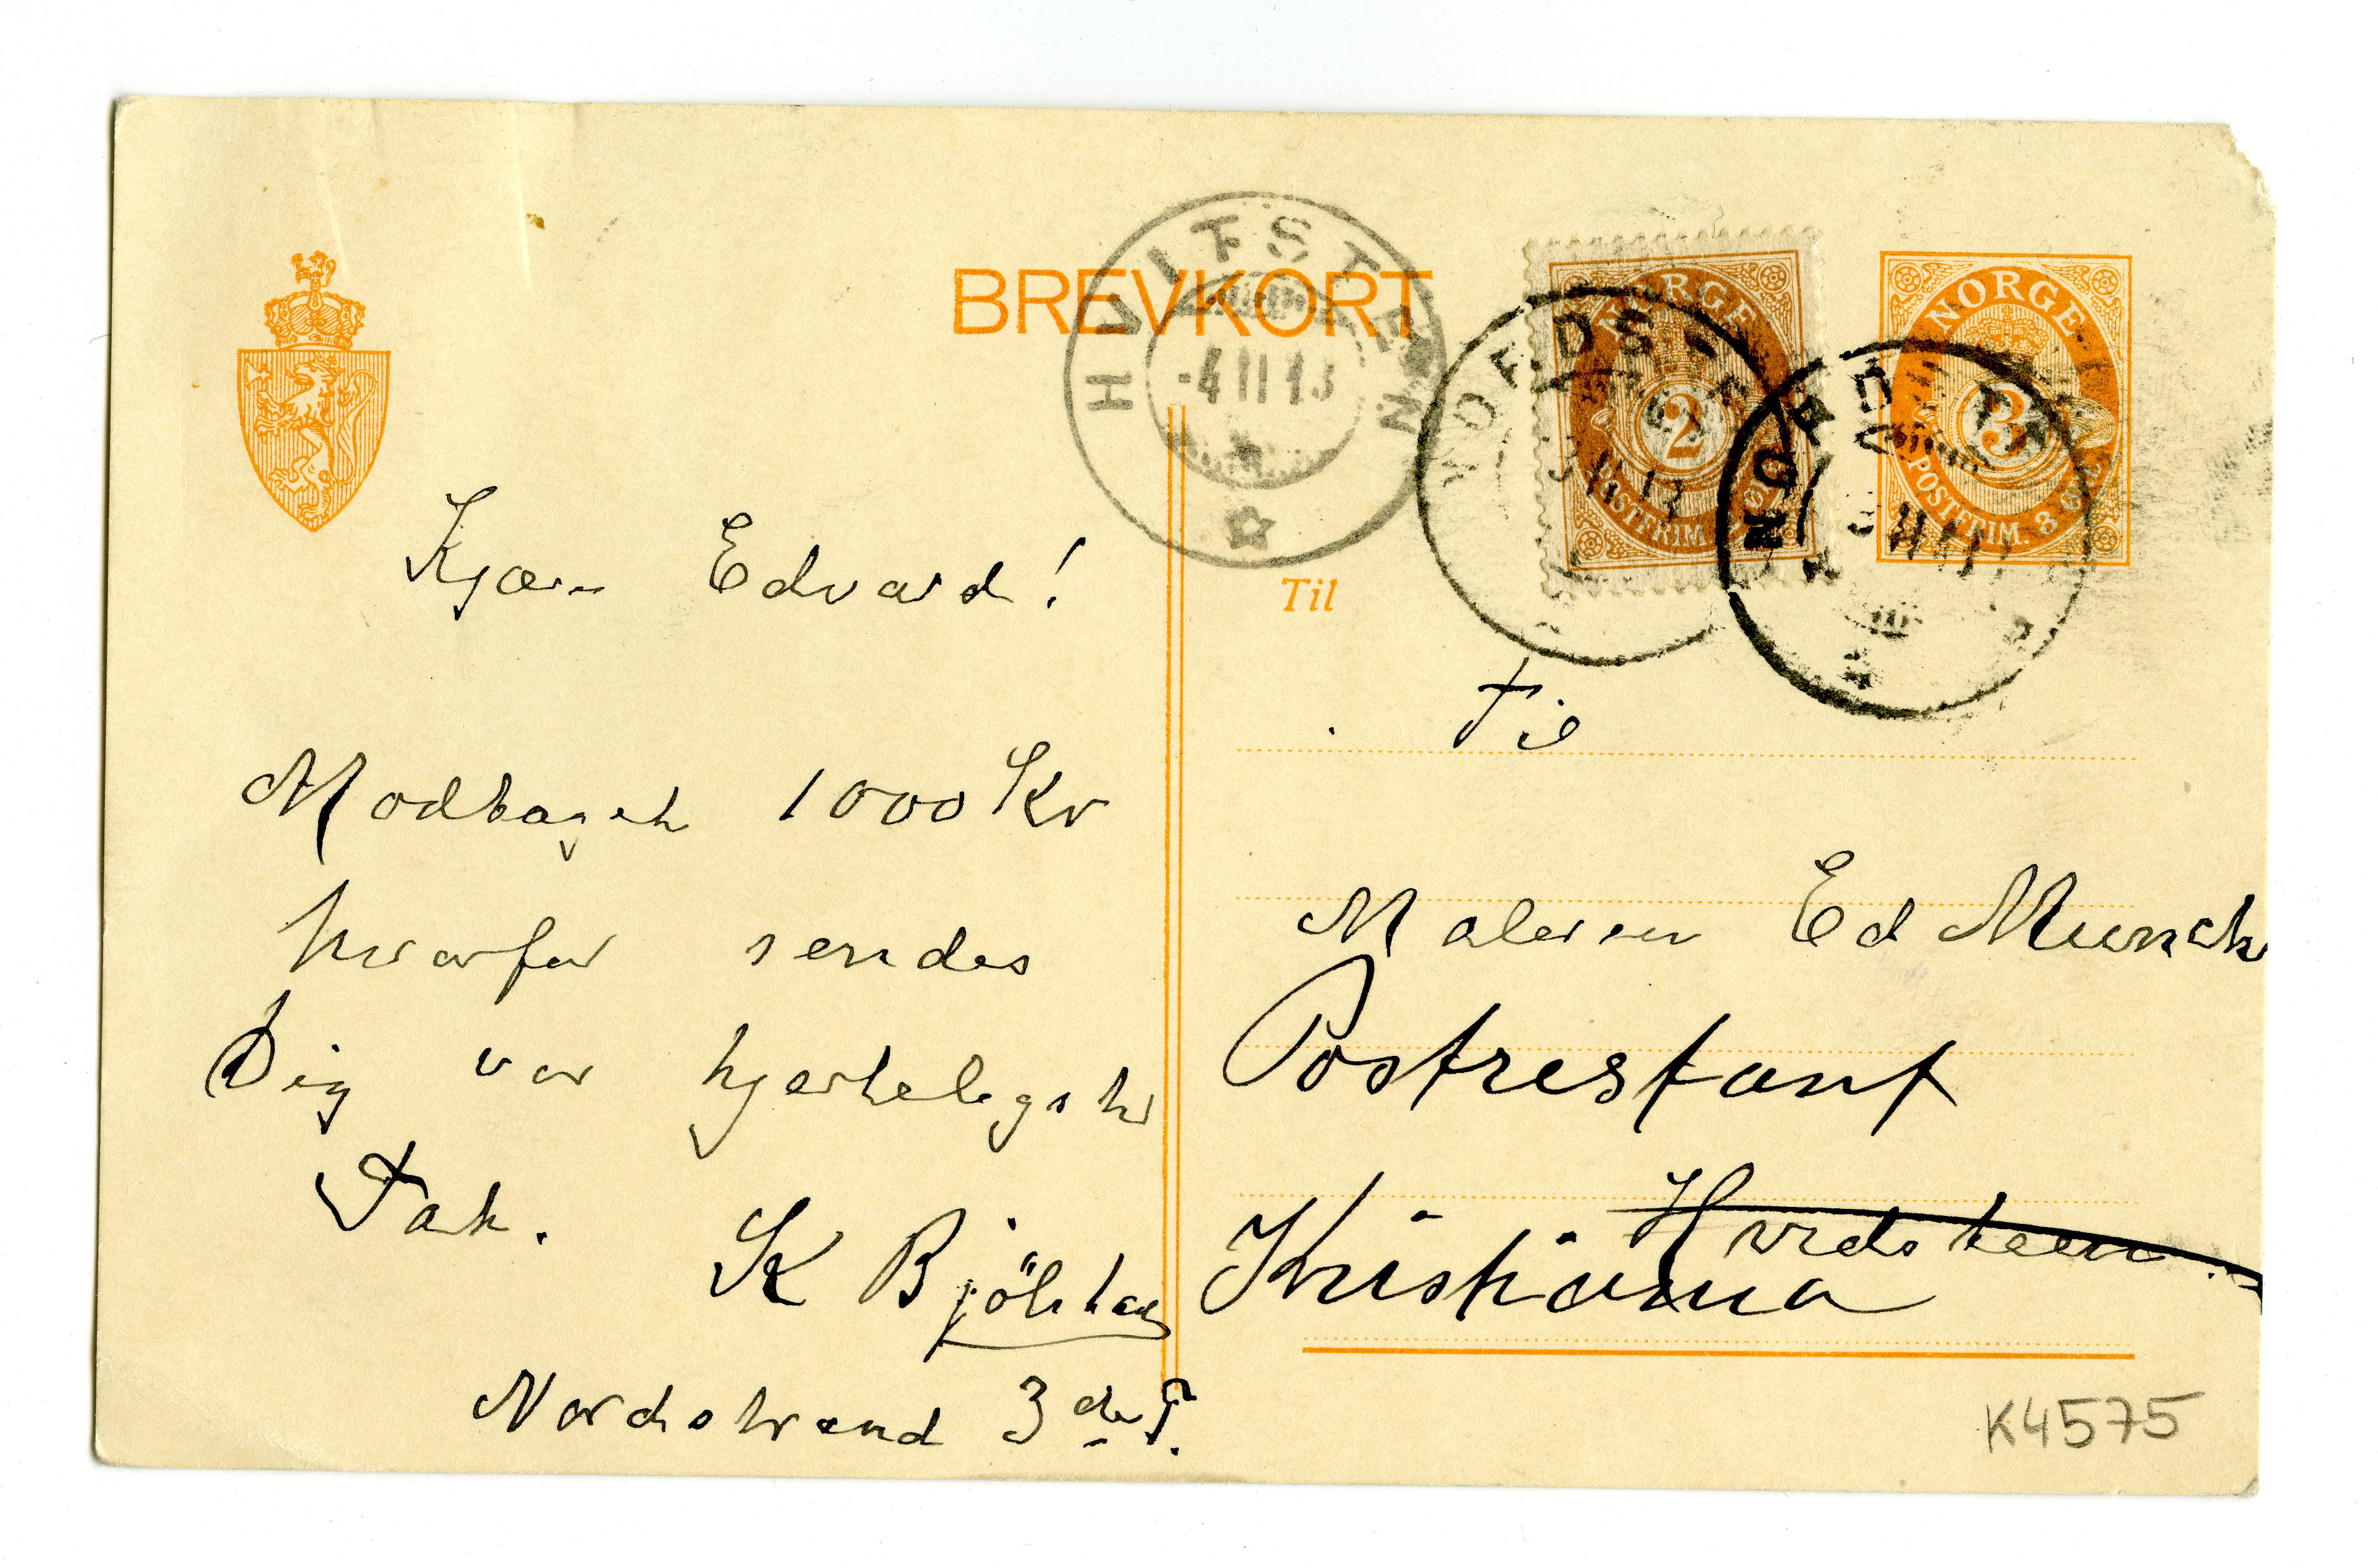 BREVKORT
HVITSTEN
-4 II 13
NORDSTRAND
3 II 13
NORGE
2
POSTFRIM
NORGE
3
POSTFRIM. 3 ØRE
Til
Kjære Edvard!
Modtaget 1000 Kr
hvorfor sendes
Dig vor hjerteligste
Tak.
K Bjölstad
Nordstrand 3de
Til
Maleren Ed Munch
Postrestant
Hvidsteen
Kristiania
K4575